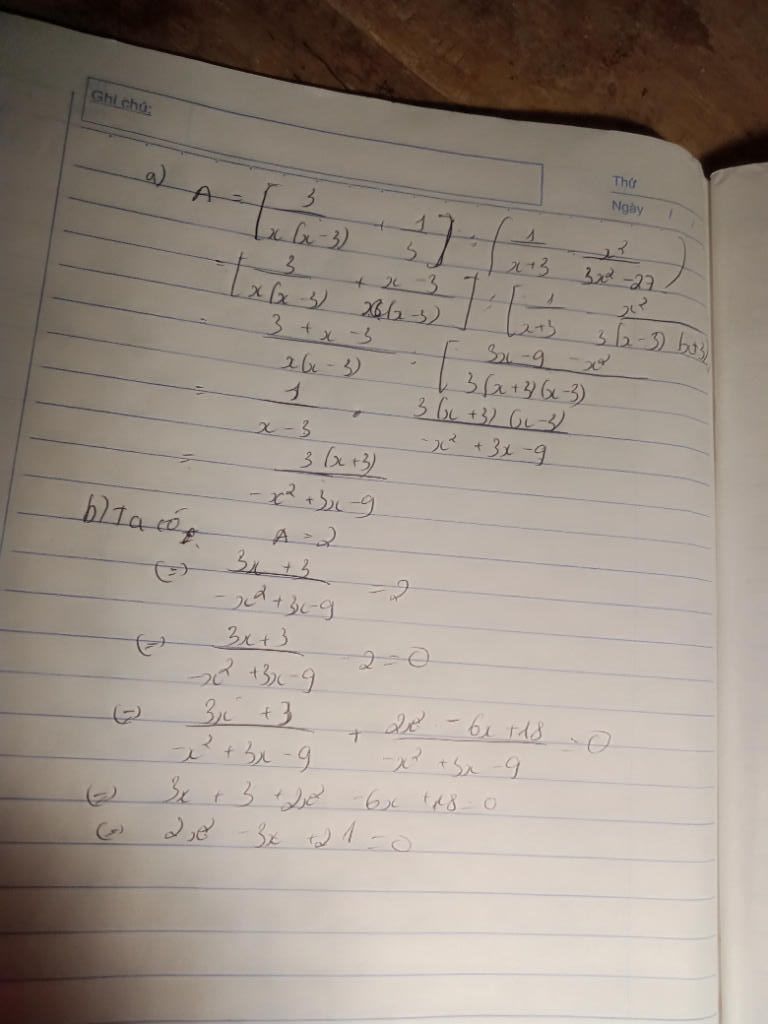 Ghi chú:
Thứ
Ngày / /
a) A = [3/(x(x-3)) + 1/3] : (1/(x+3) - x²/(3x²-27))
= [3/(x(x-3)) + (x-3)/(x(x-3))] : [1/(x+3) - x²/(3(x-3)(x+3))]
= (3+x-3)/(x(x-3)) : [(3x-9-x²)/(3(x+3)(x-3))]
= 1/(x-3) . (3(x+3)(x-3))/(-x²+3x-9)
= (3(x+3))/(-x²+3x-9)
b) Ta có A = 2
(=) (3x+3)/(-x²+3x-9) = 2
(=) (3x+3)/(-x²+3x-9) - 2 = 0
(=) (3x+3)/(-x²+3x-9) + (2x²-6x+18)/(-x²+3x-9) = 0
(=) 3x + 3 + 2x² - 6x + 18 = 0
(=) 2x² - 3x + 21 = 0